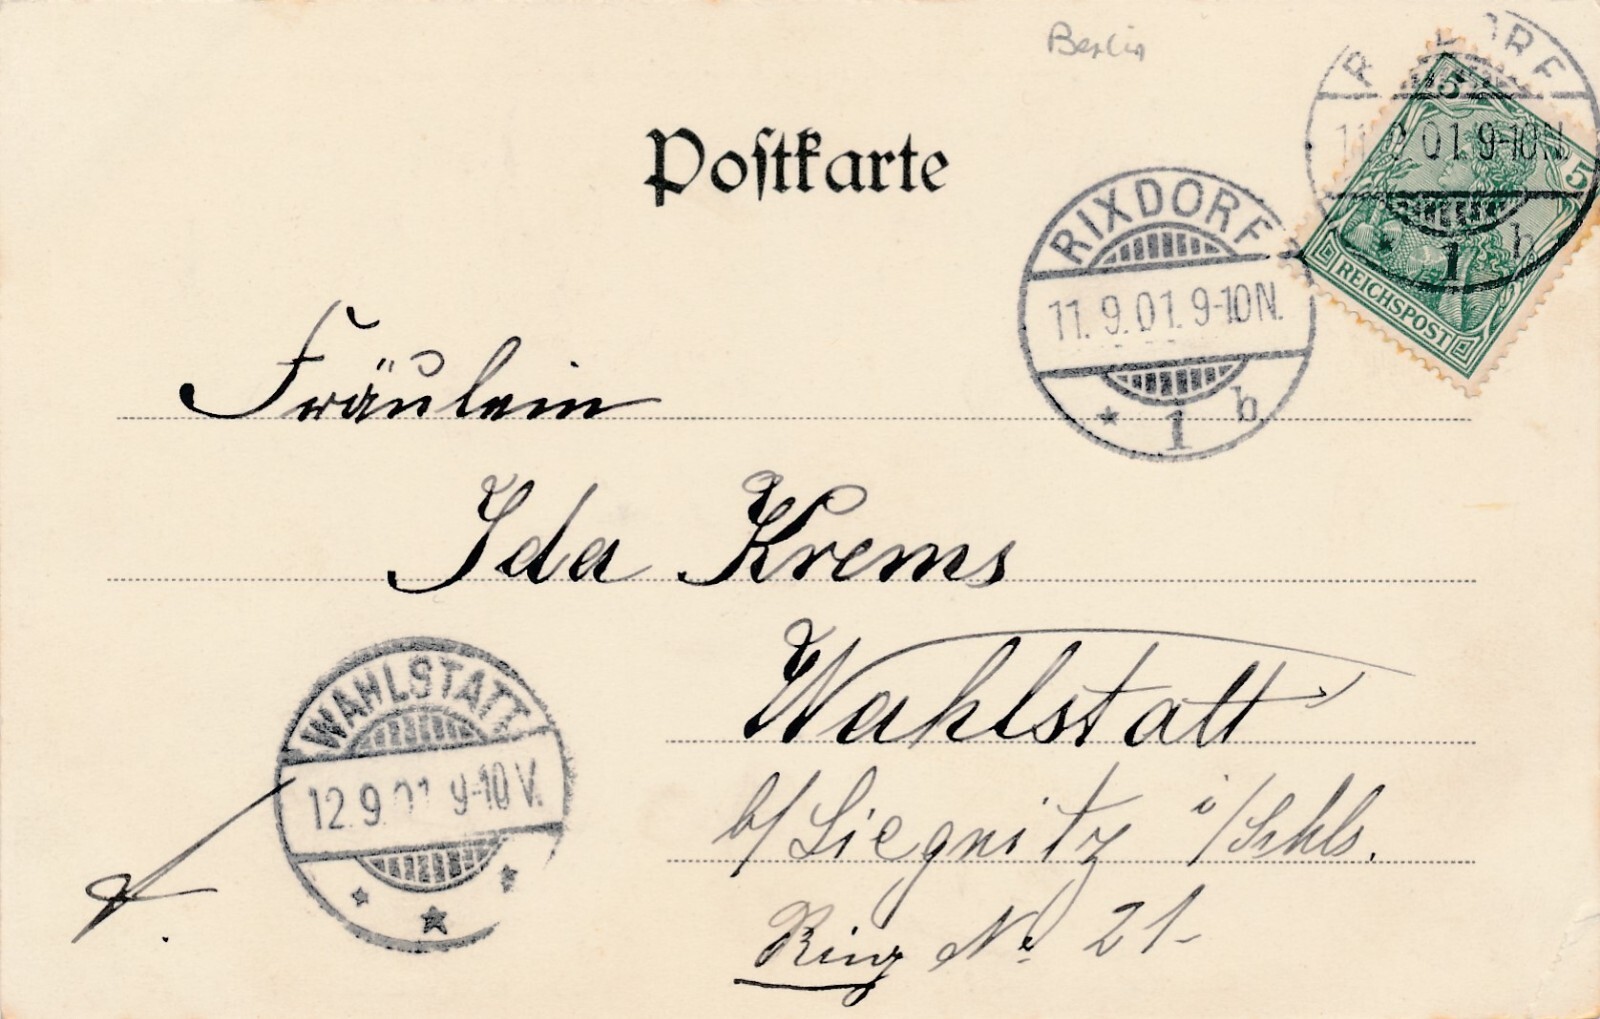 Berlin
Postkarte
RIXDORF
11.9.01.9-10N.
1 b
5
5
REICHSPOST
RIXDORF
11.9.01.9-10N.
* 1 b
Fräulein
Ida Krems
Wahlstatt
b/Liegnitz i/Schls.
Ring No 21
WAHLSTATT
12.9.01 9-10V.